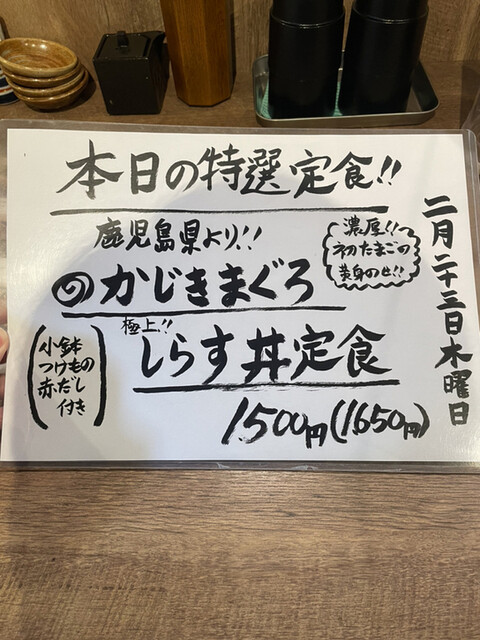 本日の特選定食!!
二月二十三日木曜日
鹿児島県より!!
濃厚!!
初たまごの
黄身のせ!!
のかじきまぐろ
極上!!
しらす丼定食
小鉢
つけもの
赤だし
付き
1500円(1650円)